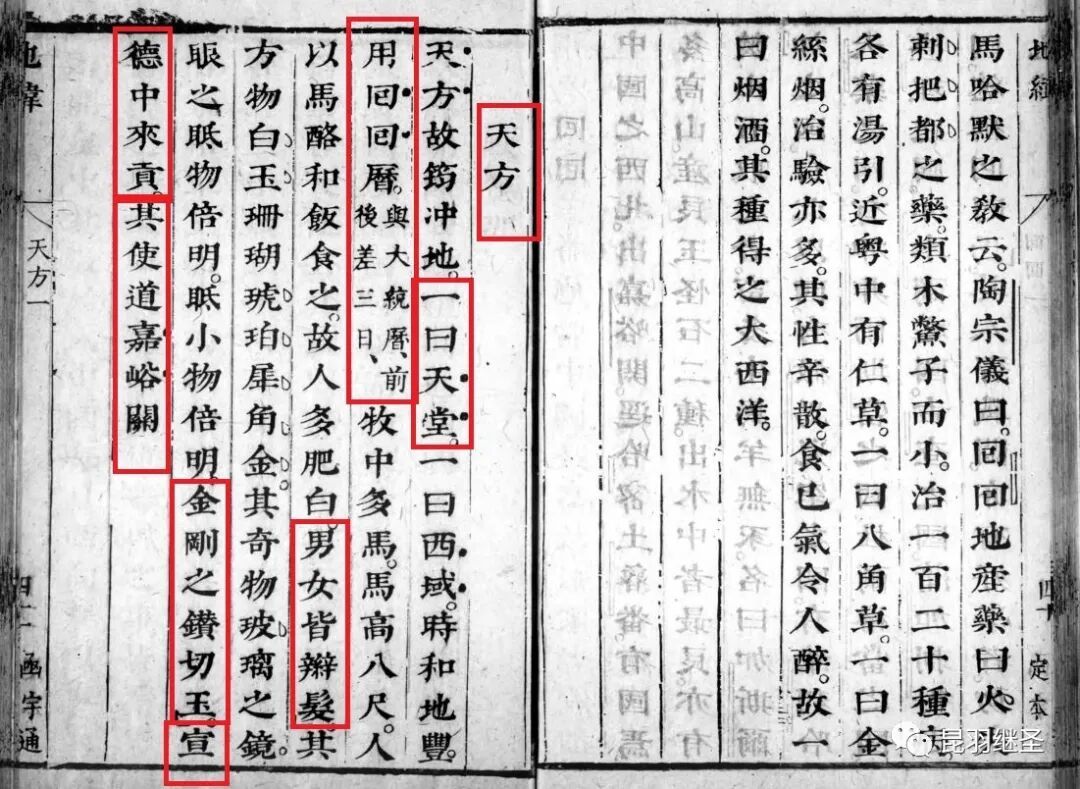 地緯 四十 定本
馬哈默之敎云。陶宗儀曰。囘囘地産藥曰火失
剌把都之藥。類木鱉子而小。治一百二十種症
各有湯引。近粤中有仁草。一曰八角草。一曰金
絲烟。治驗亦多。其性辛散。食已氣令人醉。故一
曰烟酒。其種得之大西洋。
天方
天方故筠冲地。一曰天堂。一曰西域。時和地豐。
用囘囘曆。與大統曆、前後差三日、牧中多馬。馬高八尺。人
以馬酪和飯食之。故人多肥白。男女皆辮髮其
方物白玉珊瑚琥珀犀角金。其奇物玻璃之鏡。
眂之眂物倍明。眂小物倍明。金剛之鑚切玉。宣
德中來貢。其使道嘉峪關
地緯 天方一 四十一 函宇通
昆羽继圣